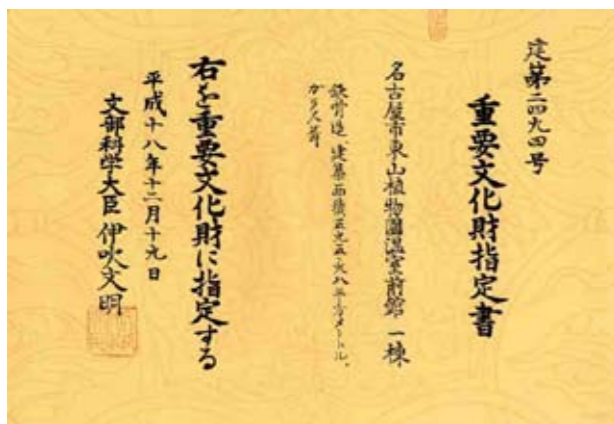 建第二四九四号
重要文化財指定書
名古屋市東山植物園温室前館 一棟
鉄骨造、建築面積五九五・六八平方メートル、
ガラス葺
右を重要文化財に指定する
平成十八年十二月十九日
文部科学大臣 伊吹文明